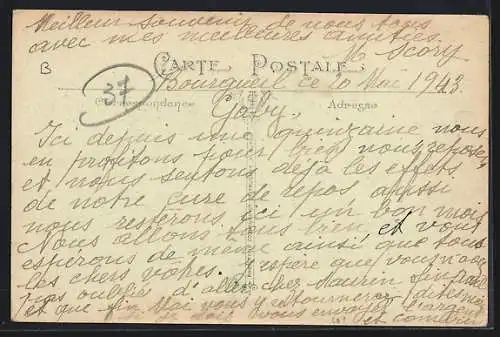 Meilleur souvenir de nous tous
avec mes meilleures amitiés
M Scory
B
CARTE POSTALE
37
Bourgueil ce 20 Mai 1943.
Correspondance
Adresse
Gaby,
Ici depuis une quinzaine nous
en profitons pour bien nous reposer
et nous sentons déjà les effets
de notre cure de repos, aussi
nous resterons ici un bon mois
Nous allons tous bien, et vous
espérons de même ainsi, que tous
les chers vôtres. J'espère que vous n'avez
pas oubliés d'aller chez Maurin
et que fin Mai vous y retournerez, dites moi
vous envoyer l'argent
et combien